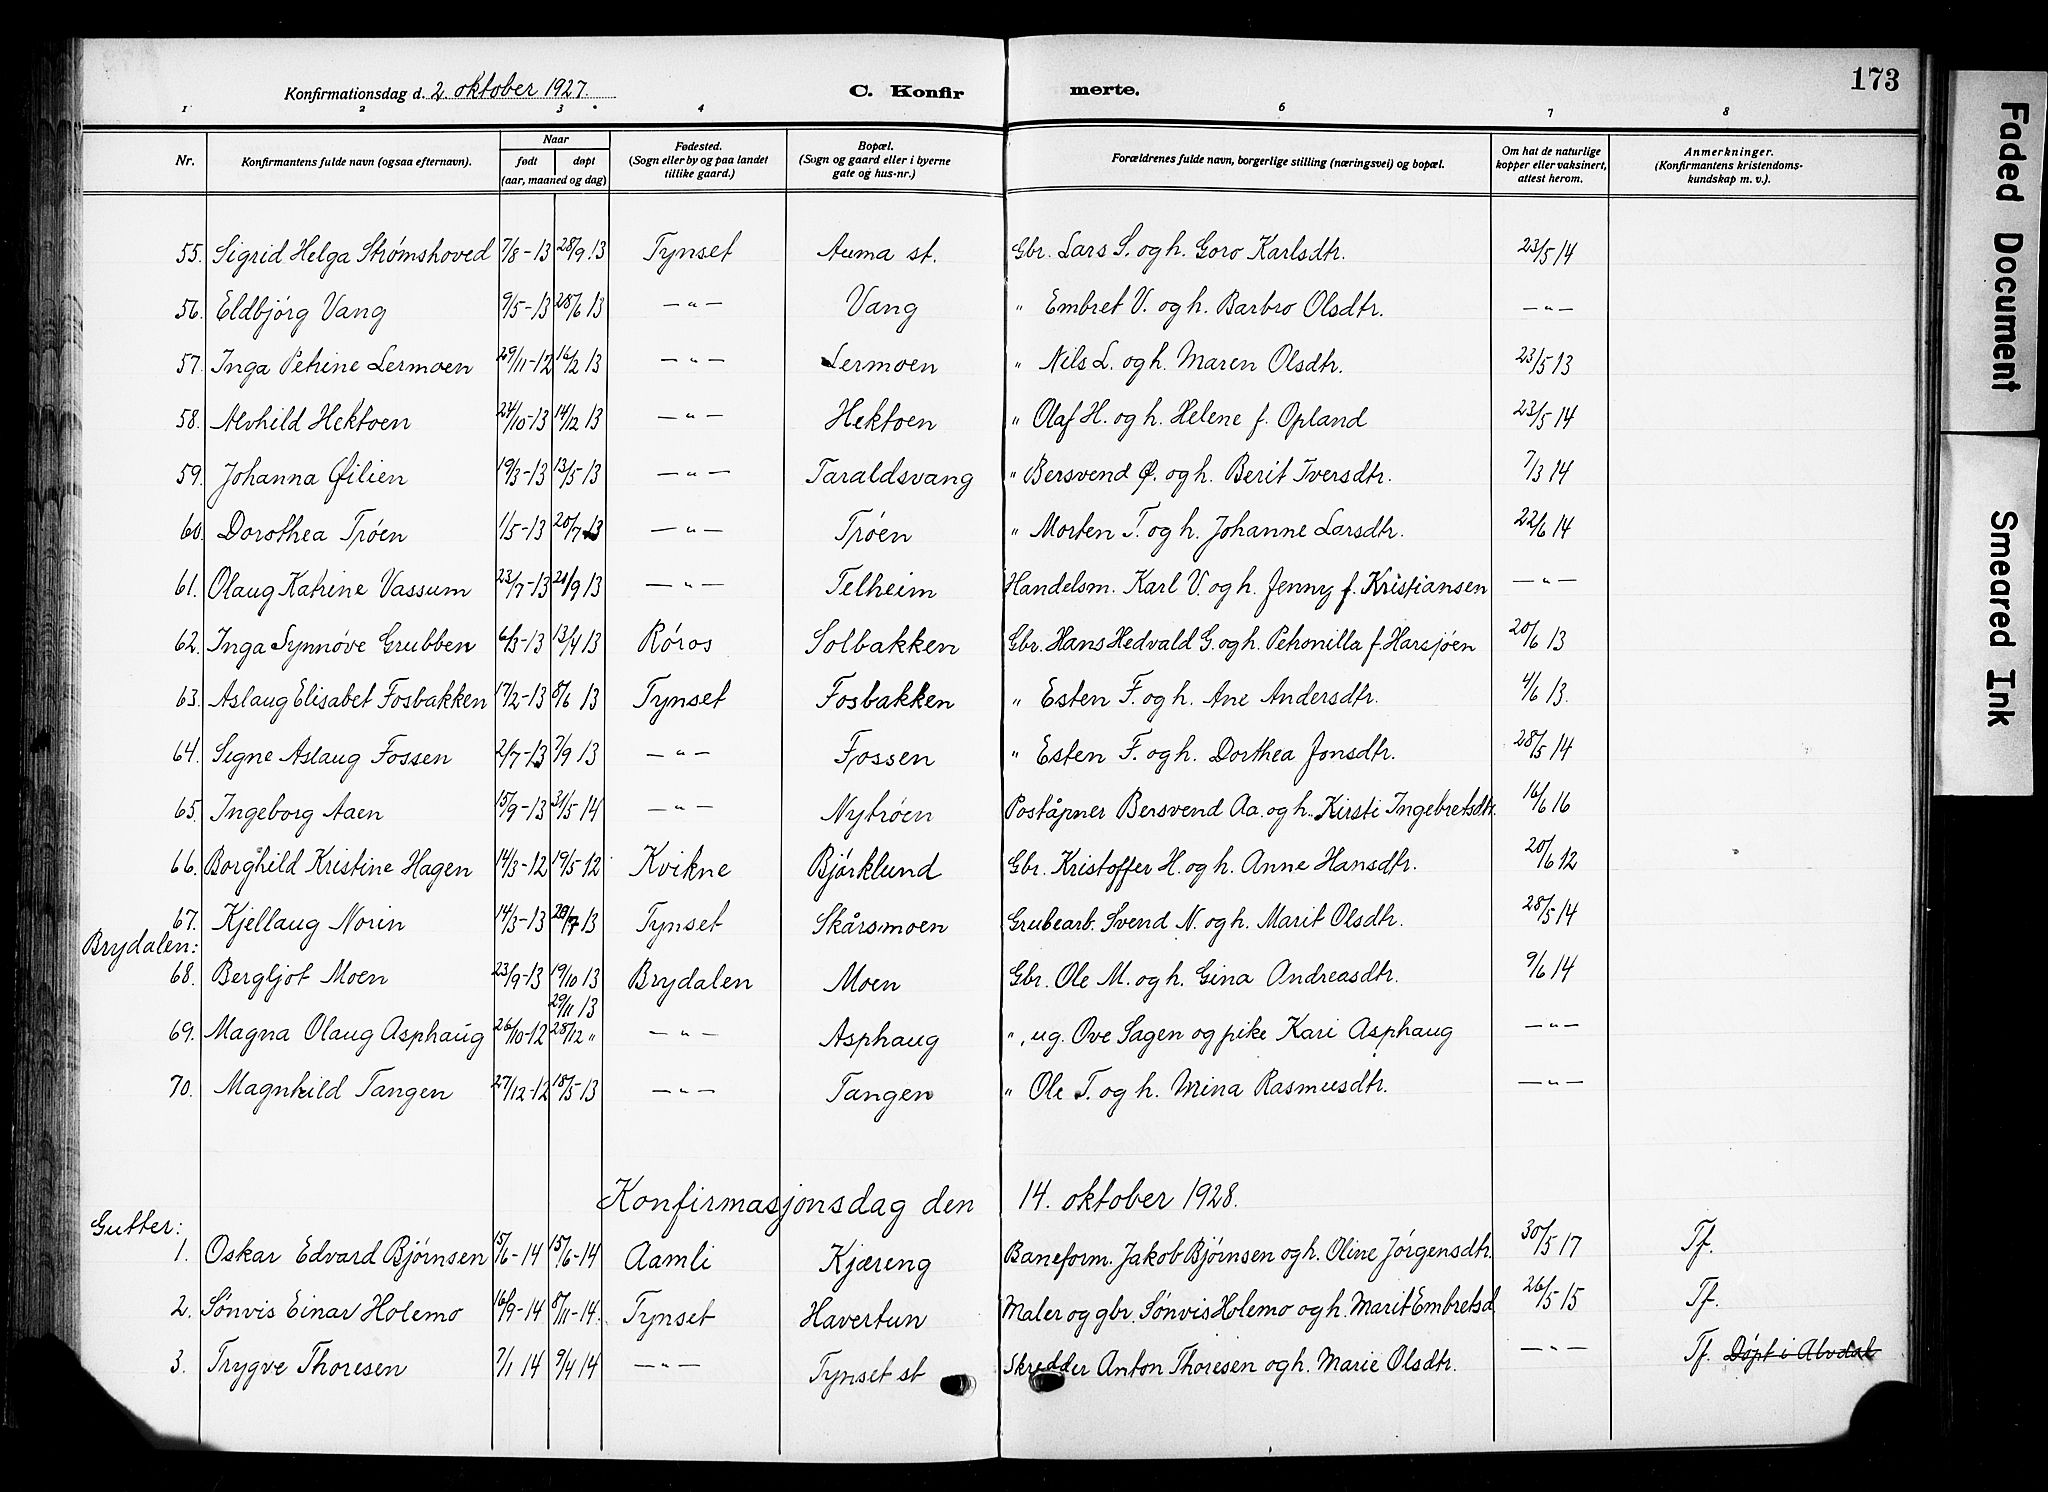 173
Konfirmationsdag d. 2. oktober 1927.
C. Konfirmerte.
1 2 3 4 6 7 8
Nr. Konfirmantens fulde navn (ogsaa efternavn). Naar født døpt (aar, maaned og dag) Fødested. (Sogn eller by og paa landet tillike gaard.) Bopæl. (Sogn og gaard eller i byerne gate og hus-nr.) Forældrenes fulde navn, borgerlige stilling (næringsvei) og bopæl. Om hat de naturlige kopper eller vaksinert, attest herom. Anmerkninger. (Konfirmantens kristendomskundskap m. v.).
55. Sigrid Helga Strømshoved 7/8-13 28/9 13 Tynset Auma st. Gbr. Lars S. og h. Goro Karlsdtr. 23/5 14
56. Eldbjørg Vang 9/5-13 28/6 13 —"— Vang " Embret V. og h. Barbro Olsdtr. —"—
57. Inga Petrine Lermoen 29/11-12 16/2 13 —"— Lermoen " Nils L. og h. Maren Olsdtr. 23/5 13
58. Alvhild Hektoen 24/10-13 14/12 13 —"— Hektoen " Olaf H. og h. Helene f. Opland 23/5 14
59. Johanna Øilien 19/3-13 13/5 13 —"— Taraldsvang " Bersvend Ø. og h. Berit Iversdtr. 7/3 14
60. Dorothea Trøen 1/5-13 20/7 13 —"— Trøen " Morten T. og h. Johanne Larsdtr. 22/6 14
61. Olaug Katrine Vassum 23/7-13 21/9 13 —"— Telheim Handelsm. Karl V. og h. Jenny f. Kristiansen —"—
62. Inga Synnøve Grubben 6/3-13 13/4 13 Røros Solbakken Gbr. Hans Hedvald G. og h. Petronilla f. Harsjøen 20/6 13
63. Aslaug Elisabet Fosbakken 17/2-13 8/6 13 Tynset Fosbakken " Esten F. og h. Ane Andersdtr. 4/6 13.
64. Signe Aslaug Fossen 2/7-13 7/9 13 —"— Fossen " Esten F. og h. Dorthea Jonsdtr. 28/5 14
65. Ingeborg Aaen 15/9-13 31/5 14 —"— Nytrøen Poståpner Bersvend Aa. og h. Kirsti Ingebretsdtr. 16/6 16
66. Borghild Kristine Hagen 14/3-12 19/5 12 Kvikne Bjørklund Gbr. Kristoffer H. og h. Anne Hansdtr. 20/6 12
67. Kjellaug Norin 14/3-13 20/7 13 Tynset Skårsmoen Grubearb. Svend N. og h. Marit Olsdtr. 28/5 14
Brydalen:
68. Bergljot Moen 23/9-13 19/10 13 Brydalen Moen Gbr. Ole M. og h. Gina Andreasdtr. 9/6 14
29/11 13
69. Magna Olaug Asphaug 26/10-12 28/12 " —"— Asphaug ", ug. Ove Sagen og pike Kari Asphaug —"—
70. Magnhild Tangen 27/12-12 18/5-13 —"— Tangen " Ole T. og h. Mina Rasmusdtr. —"—
Konfirmasjonsdag den 14. oktober 1928.
Gutter:
1. Oskar Edvard Bjørnsen 15/6-14 15/6-14 Aamli Kjæreng Baneform. Jakob Bjørnsen og h. Oline Jørgensdtr. 30/5 17 Tf.
2. Sønvis Einar Holemo 16/9-14 8/11-14. Tynset Havertun Maler og gbr. Sønvis Holemo og h. Marit Embretsd 26/5 15 Tf.
3. Trygve Thoresen 7/1 14 9/4 14 —"— Tynset st Skredder Anton Thoresen og h. Marie Olsdtr. —"— Tf. Døpt i Alvdal
Faded Document
Smeared Ink